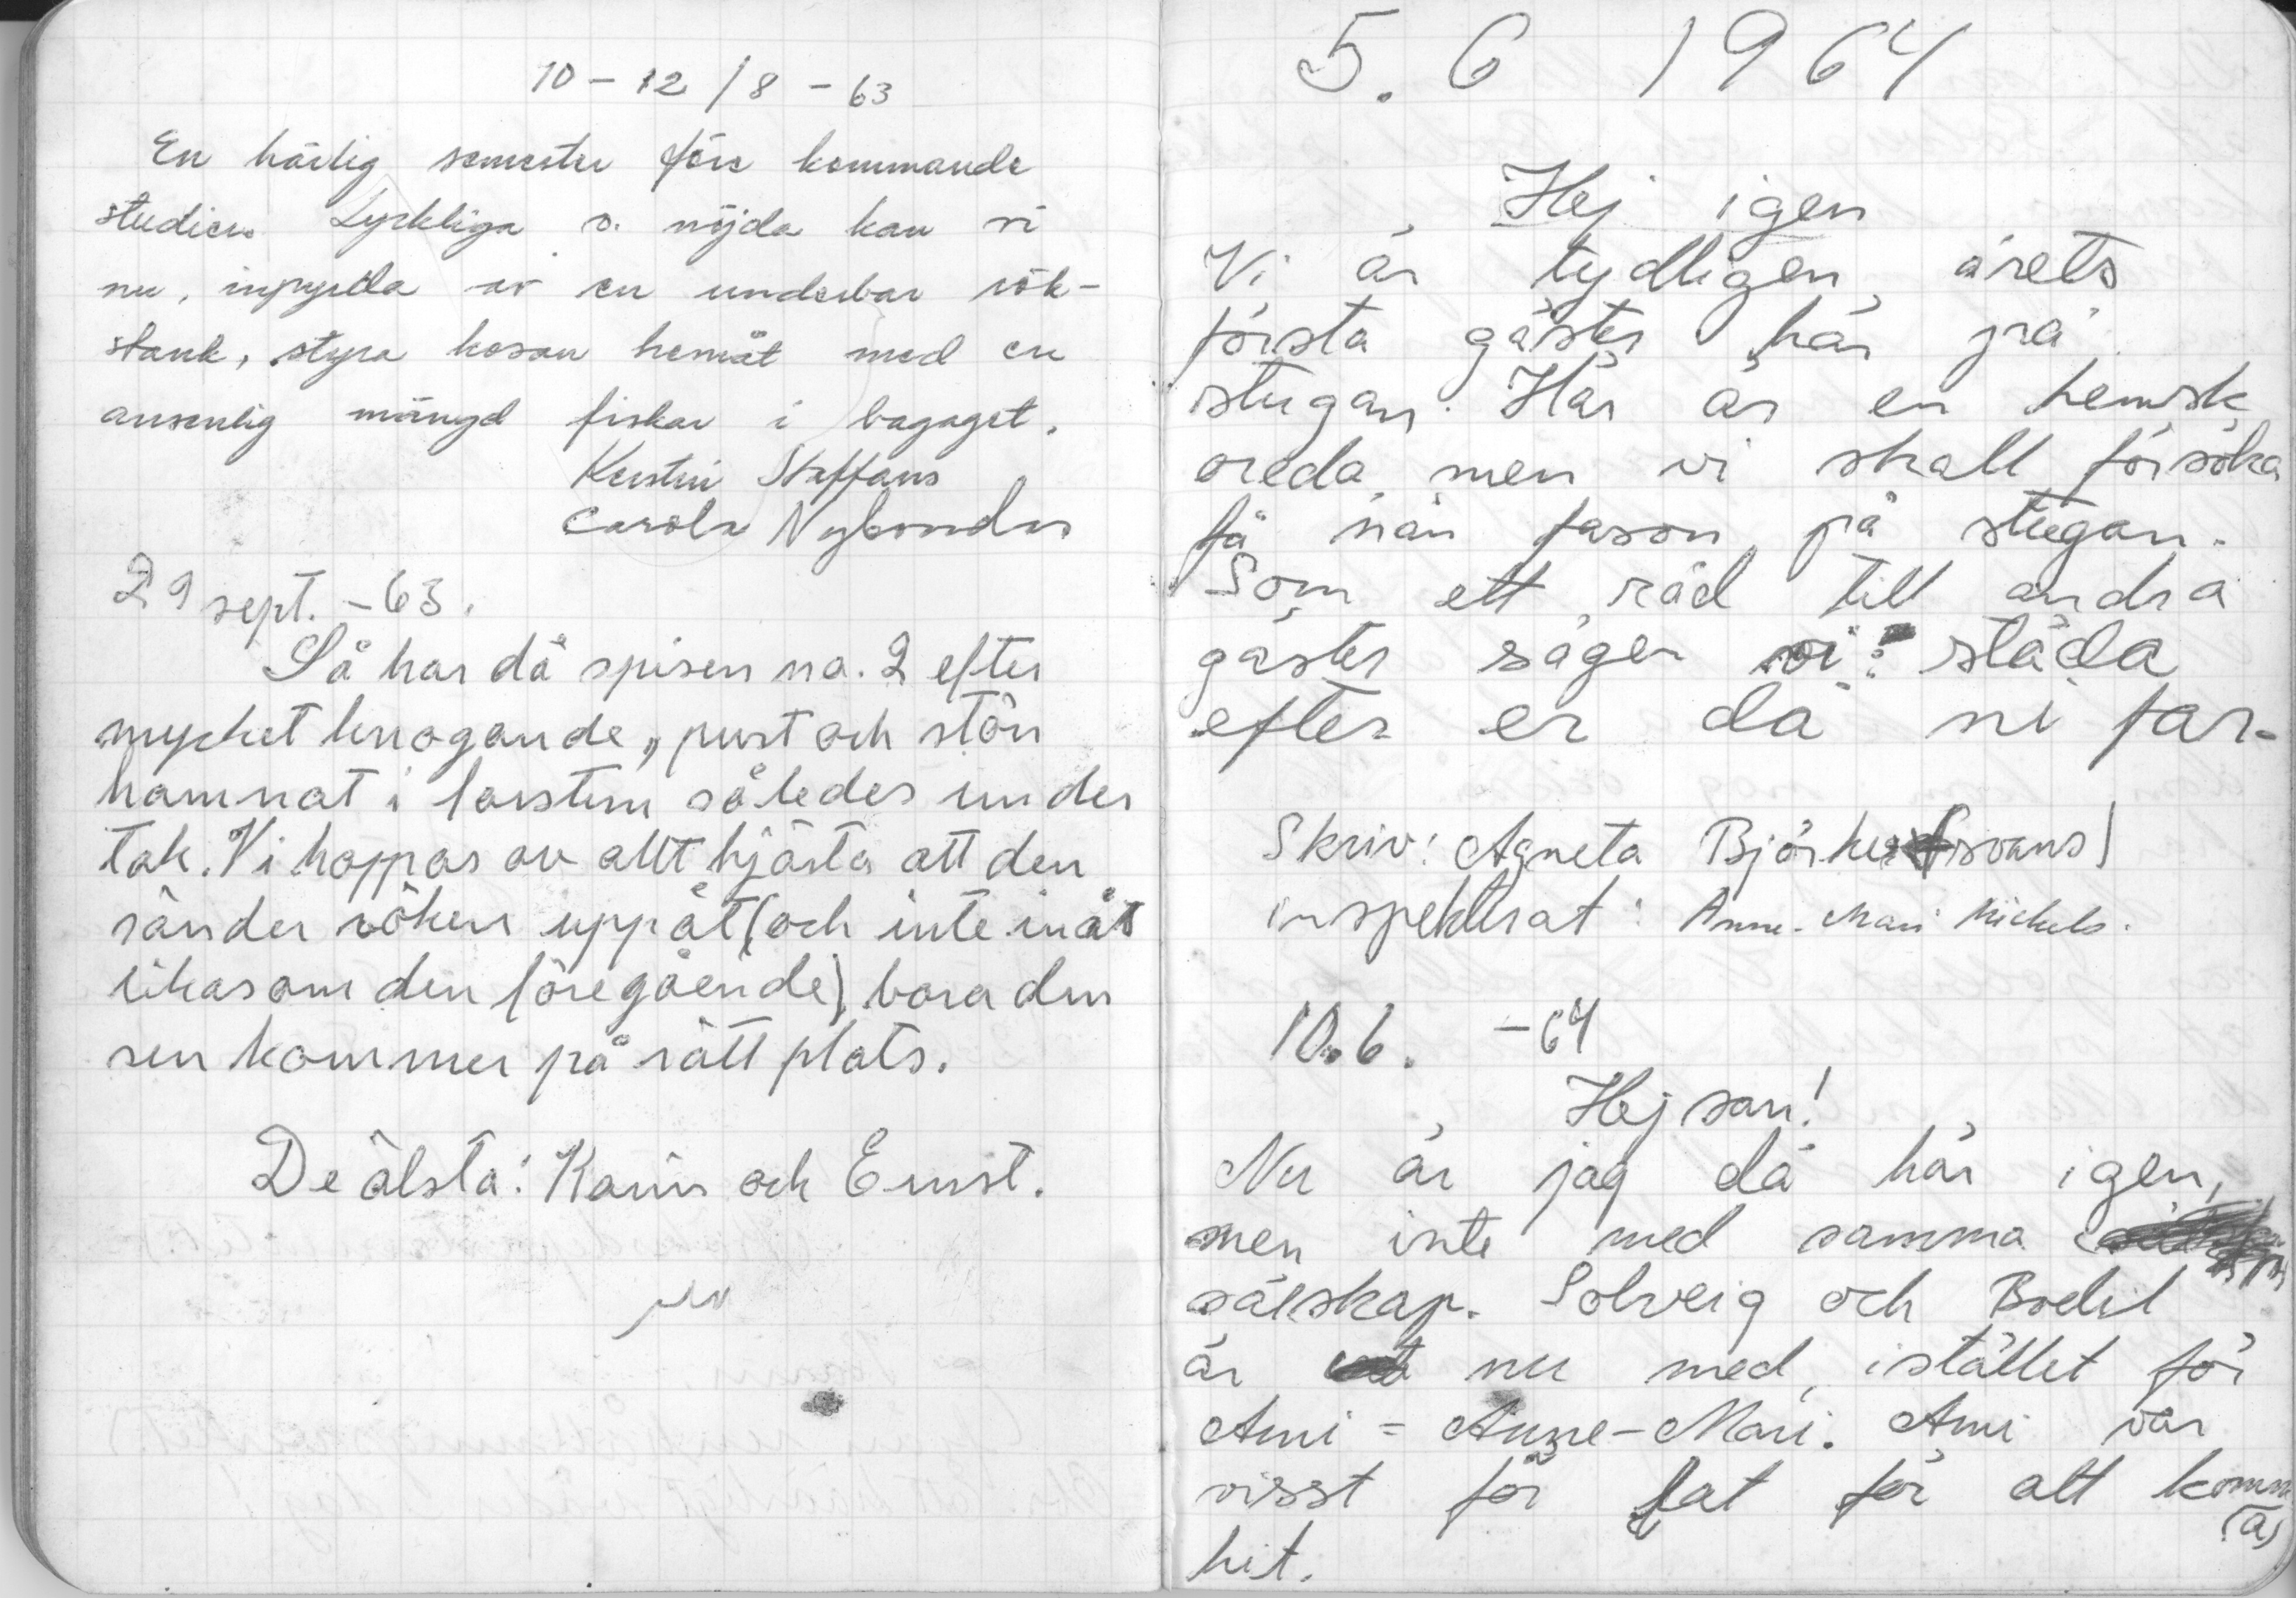 10 - 12 / 8 - 63
En härlig semester före kommande
studier. Lyckliga o. nöjda kan vi
nu, inpyrda av en underbar rök-
stank, styra kosan hemåt med en
ansenlig mängd fiskar i bagaget.
Kerstin Staffans
Carola Nybondas
29 sept. - 63.
Så har då spisen no. 2 efter
mycket knogande, pust och stön
hamnat i farstun således under
tak. Vi hoppas av allt hjärta att den
sänder röken uppåt (och inte inåt
likasom den föregående) bara den
sen kommer på rätt plats.
De älsta: Karin och Ernst.
5. 6 1964
Hej igen
Vi är tydligen årets
första gäster här på
stugan. Här är en hemsk
oreda men vi skall försöka
få nån fason på stugan.
Som ett råd till andra
gäster säger vi: städa
efter er då ni far.
Skriv: Agneta Björk
inspekterat: Anne-Mari Mickels.
10.6. -64
Hej san!
Nu är jag då här igen,
men inte med samma
sälskap. Solveig och Bodil
är nu med, istället för
Ami = Anne-Mari. Ami var
visst för lat för att komm
(a)
hit.